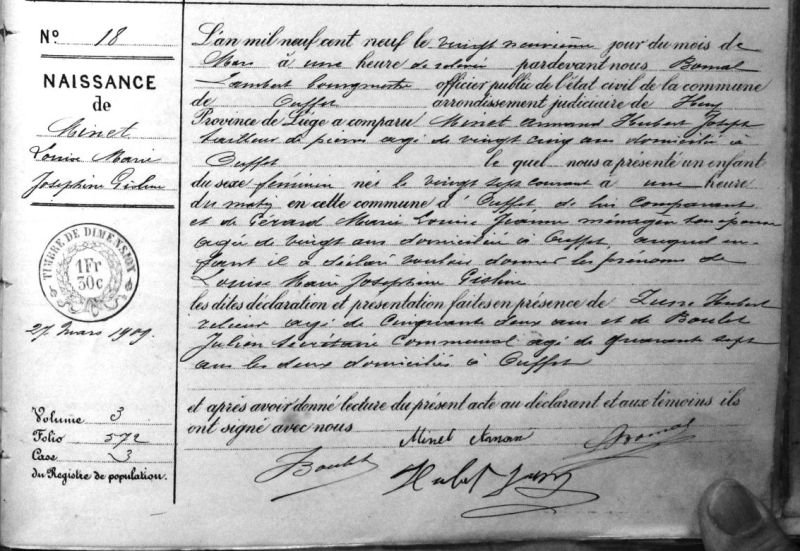 N° 18
NAISSANCE
de
Minet
Louise Marie
Josephine Gisline
TIMBRE DE DIMENSION
1Fr
30c
27 mars 1909.
Volume 3
Folio 572
Case 3
du Registre de population.
L'an mil neuf cent neuf le vingt neuvième jour du mois de
Mars à une heure de relevée pardevant nous Bomal
Lambert bourgmestre officier public de l'état civil de la commune
de Ouffet arrondissement judiciaire de Huy
Province de Liége a comparu Minet Armand Hubert Joseph
tailleur de pierres agé de vingt cinq ans domicilié à
Ouffet le quel nous a présenté un enfant
du sexe féminin née le vingt sept courant à une heure
du matin en cette commune d'Ouffet de lui Comparant
et de Gérard Marie Louise ménagère son épouse
agée de vingt ans domiciliée à Ouffet, auquel en-
fant il a déclaré vouloir donner les prénoms de
Louise Marie Josephine Gisline
les dites déclaration et présentation faites en présence de Hubert
agé de Cinquante deux ans et de Boulet
Julien Secrétaire Communal agé de quarante sept
ans les deux domiciliés à Ouffet
et après avoir donné lecture du présent acte au déclarant et aux témoins ils
ont signé avec nous
Minet Armand
Bomal
Boulet
Hubert